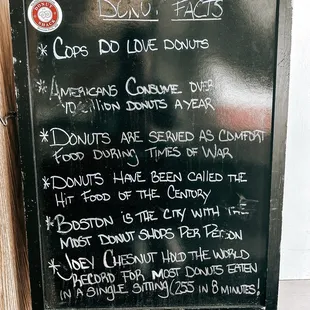 DONUT FACTS
* COPS DO LOVE DONUTS
* AMERICANS CONSUME OVER
10 BILLION DONUTS A YEAR
* DONUTS ARE SERVED AS COMFORT
FOOD DURING TIMES OF WAR
* DONUTS HAVE BEEN CALLED THE
HIT FOOD OF THE CENTURY
* BOSTON IS THE CITY WITH THE
MOST DONUT SHOPS PER PERSON
* JOEY CHESNUT HOLD THE WORLD
RECORD FOR MOST DONUTS EATEN
IN A SINGLE SITTING (255 IN 8 MINUTES!